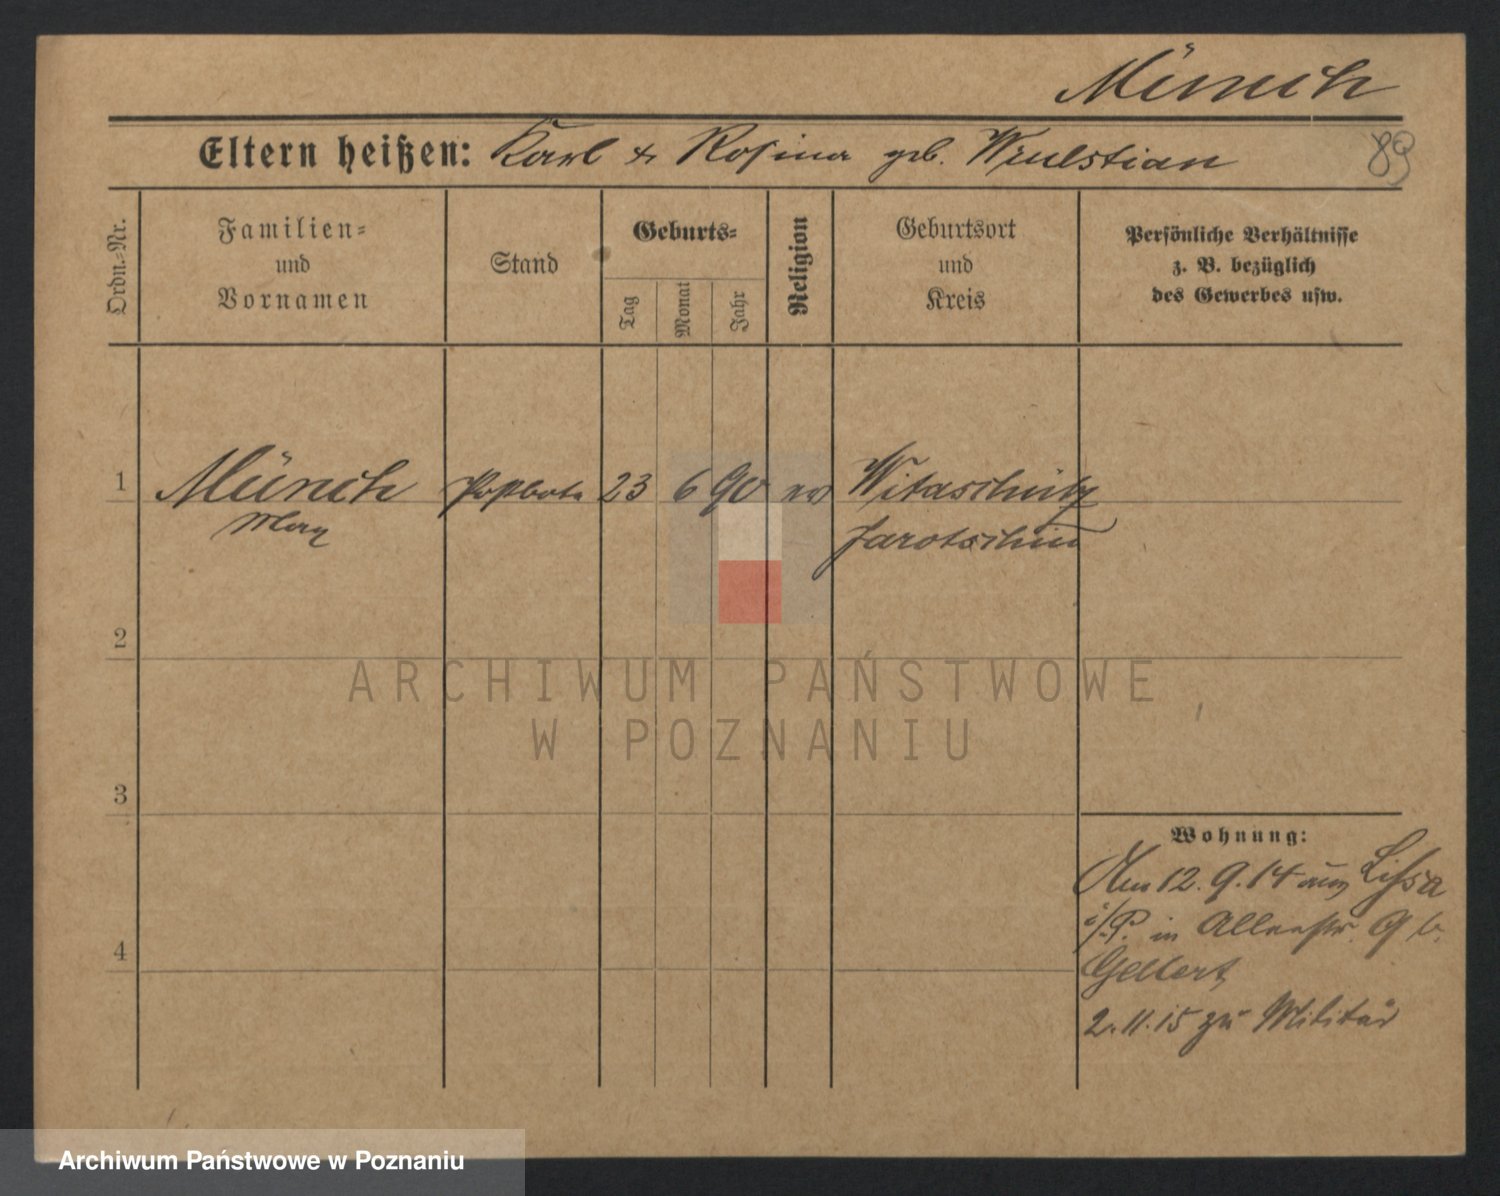 Münich
Eltern heißen: Karl & Rosina geb.
89
Ordn.-Nr.
Familien-
und
Vornamen
Stand
Geburts-
Tag
Monat
Jahr
Religion
Geburtsort
und
Kreis
Persönliche Verhältnisse
z. B. bezüglich
des Gewerbes usw.
1
Münich Postbote 23 6 90 ev Witaschütz
Max Jarotschin
2
ARCHIWUM PAŃSTWOWE
W POZNANIU
3
Wohnung:
Am 12. 9. 14 aus Lissa
i/P. in Alleestr. 9 b.
Gellert
2. 11. 15 zu Militär
4
Archiwum Państwowe w Poznaniu